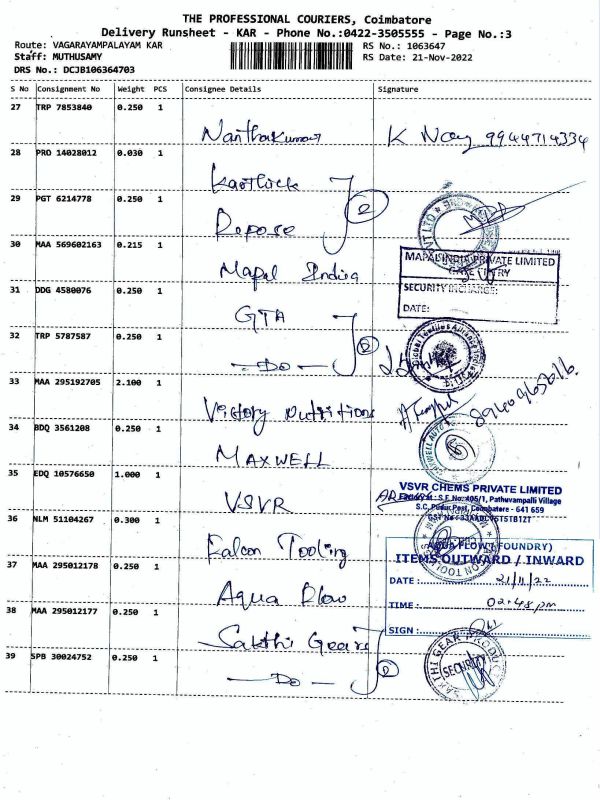 THE PROFESSIONAL COURIERS, Coimbatore
Delivery Runsheet - KAR - Phone No.:0422-3505555 - Page No.:3
Route: VAGARAYAMPALAYAM KAR RS No.: 1063647
Staff: MUTHUSAMY RS Date: 21-Nov-2022
DRS No.: DCJB106364703
S No Consignment No Weight PCS Consignee Details Signature
27 TRP 7853840 0.250 1
Nanthakumar K 9944714334
28 PRO 14028012 0.030 1
29 PGT 6214778 0.250 1
2
Repose
30 MAA 569602163 0.215 1
Mapal India
MAPAL INDIA PRIVATE LIMITED
GATE ENTRY
SECURITY INCHARGE:
DATE:
31 DDG 4580076 0.250 1
GTA
32 TRP 5787587 0.250 1
Do 2
33 MAA 295192705 2.100 1
Victory Nutritions
34 BDQ 3561208 0.250 1
MAXWELL
35 EDQ 10576650 1.000 1
VSVR
VSVR CHEMS PRIVATE LIMITED
S.F. No. 405/1, Pathuvampalli Village
Coimbatore - 641 659
36 NLM 51104267 0.300 1
Falcon Tooling
37 MAA 295012178 0.250 1
Aqua Flow
AQUA FLOW (FOUNDRY)
ITEMS OUTWARD / INWARD
DATE : 21/11/22
TIME : 02.45 pm
SIGN :
38 MAA 295012177 0.250 1
Sakthi Gears
39 SPB 30024752 0.250 1
Do 2
SECURITY